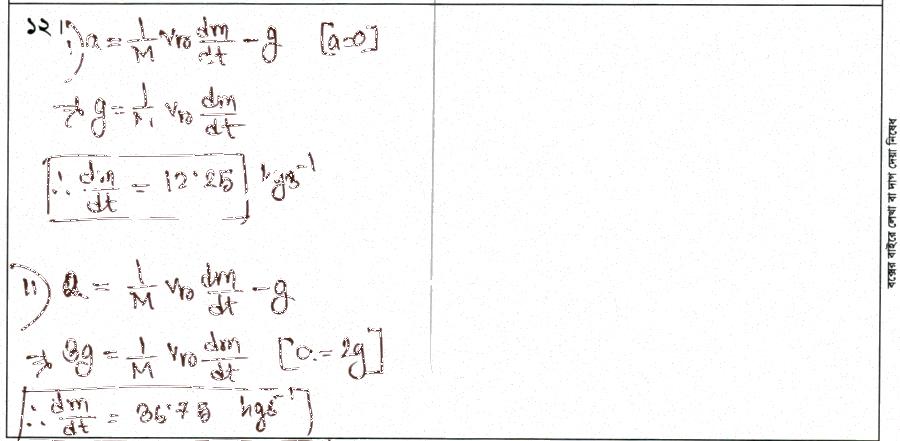 ১২।
i) a = 1/M vro dm/dt - g [a=0]
⇒ g = 1/M vro dm/dt
∴ dm/dt = 12.25 kgs⁻¹
ii) a = 1/M vro dm/dt - g
⇒ 3g = 1/M vro dm/dt [a = 2g]
∴ dm/dt = 36.75 kgs⁻¹
বক্সের বাইরে লেখা বা দাগ দেয়া নিষেধ